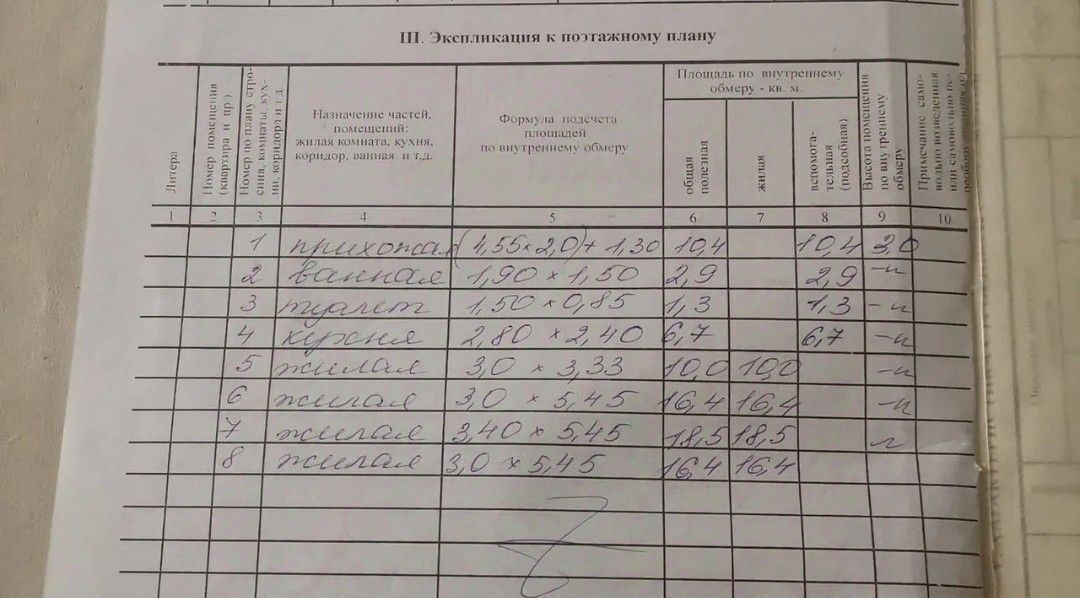 III. Экспликация к поэтажному плану
Литера
Номер помещения (квартира и пр.)
Номер по плану стро-
ения, комнаты, кух-
ни, коридора и т.д.
Назначение частей,
помещений:
жилая комната, кухня,
коридор, ванная и т.д.
Формула подсчета
площадей
по внутреннему обмеру
Площадь по внутреннему
обмеру - кв. м.
общая
полезная
жилая
вспомога-
тельная
(подсобная)
Высота помещения
по внутреннему
обмеру
Примечание само-
вольно возведенная
или самовольно пе-
1 2 3 4 5 6 7 8 9 10
1 прихожая (4,55×2,0)+1,30 10,4 10,4 3,0
2 ванная 1,90 × 1,50 2,9 2,9 -и
3 туалет 1,50 × 0,85 1,3 1,3 -и
4 кухня 2,80 × 2,40 6,7 6,7 -и
5 жилая 3,0 × 3,33 10,0 10,0 -и
6 жилая 3,0 × 5,45 16,4 16,4 -и
7 жилая 3,40 × 5,45 18,5 18,5
8 жилая 3,0 × 5,45 16,4 16,4